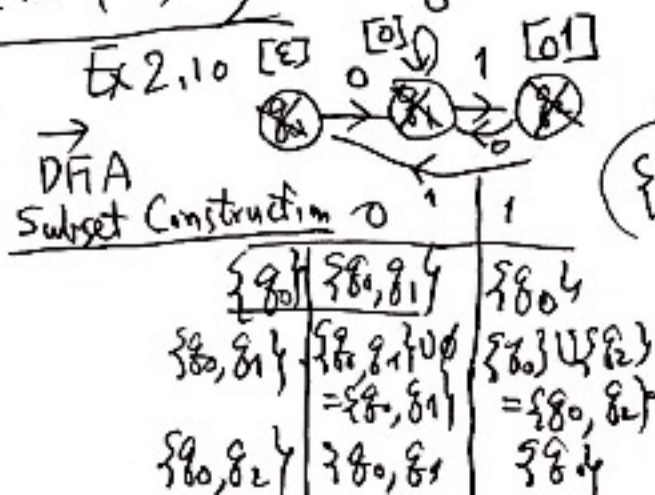 Ex 2.10 [ε] 0 [0] 1 [01]
0
1
DFA
Subset Construction 0 1
{q0} {q0,q1} {q0}
{q0,q1} {q0,q1}∪∅ {q0}∪{q2}
={q0,q1} ={q0,q2}
{q0,q2} {q0,q1 {q0}